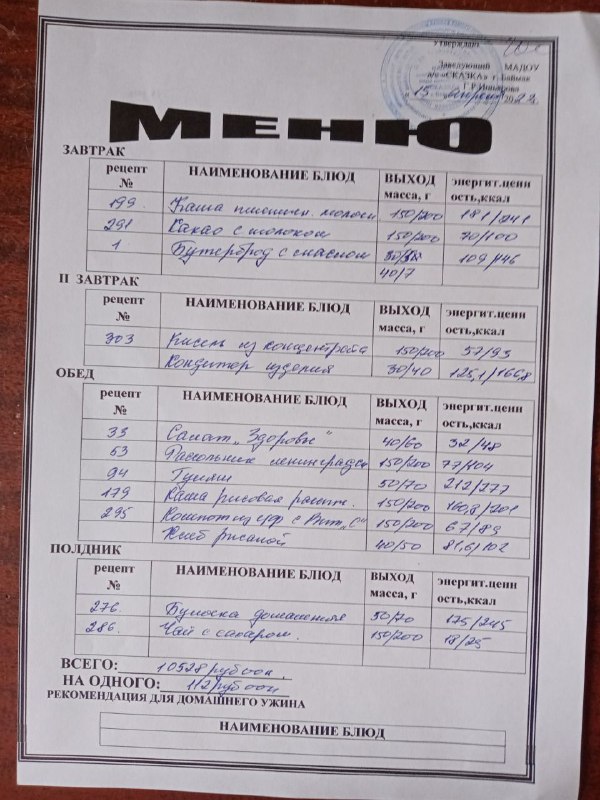 Утверждаю
Заведующий МАДОУ
д/с «СКАЗКА» г. Баймак
« 15 » апреля 202
МЕНЮ
ЗАВТРАК
рецепт № НАИМЕНОВАНИЕ БЛЮД ВЫХОД масса, г энергит.ценн ость,ккал
199. Каша пшеничн. молочн 150/200 181/241
291 Какао с молоком 150/200 70/100
1 Бутерброд с маслом 109/146
40/7
II ЗАВТРАК
рецепт № НАИМЕНОВАНИЕ БЛЮД ВЫХОД масса, г энергит.ценн ость,ккал
303 Кисель из концентрата 150/200 57/93
Кондитер изделия 30/40 125,1/166,8
ОБЕД
рецепт № НАИМЕНОВАНИЕ БЛЮД ВЫХОД масса, г энергит.ценн ость,ккал
33 Салат „Здоровье" 40/60 32/48
63 Рассольник ленинградск 150/200 77/104
94 Гуляш 50/70 212/277
179 Каша рисовая рассып. 150/200 160,8/201
295 Компот из с/ф с Вит „С" 150/200 67/89
Хлеб ржаной 40/50 81,6/102
ПОЛДНИК
рецепт № НАИМЕНОВАНИЕ БЛЮД ВЫХОД масса, г энергит.ценн ость,ккал
276. Булочка домашняя 50/70 175/245
286. Чай с сахаром. 150/200 18/25
ВСЕГО: 10528 руб 00 к.
НА ОДНОГО: 112 руб 00 к
РЕКОМЕНДАЦИЯ ДЛЯ ДОМАШНЕГО УЖИНА
НАИМЕНОВАНИЕ БЛЮД